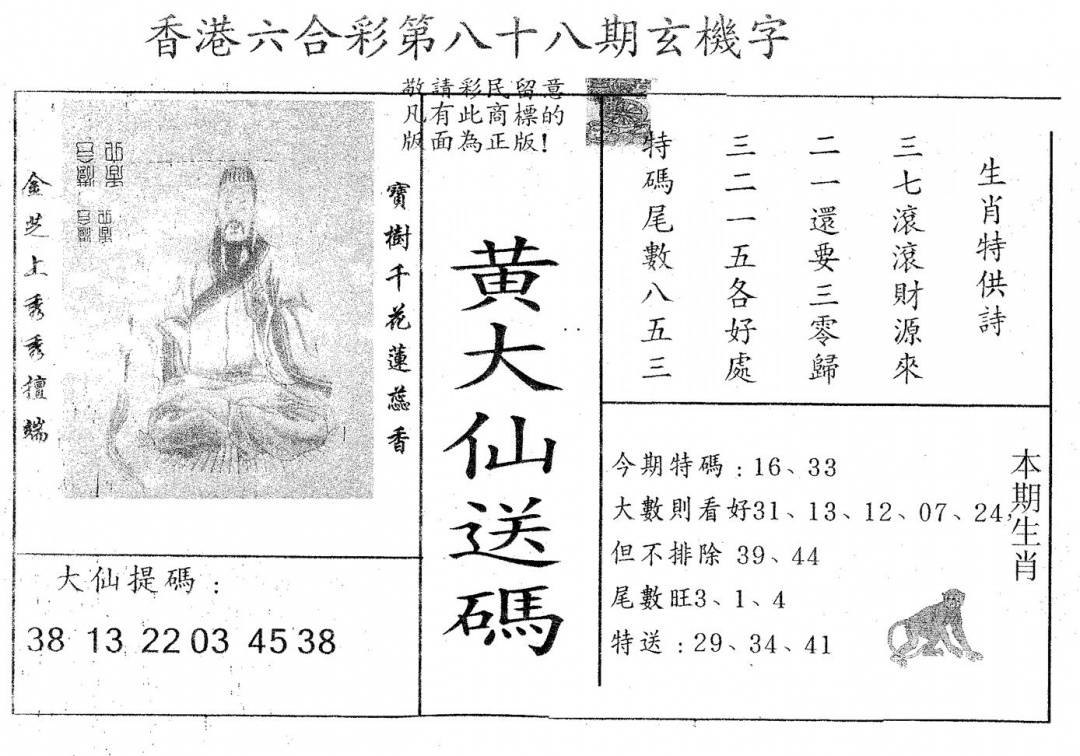 香港六合彩第八十八期玄機字
敬請彩民留意
凡有此商標的
版面為正版!
寶樹千花蓮蕊香
金芝上秀秀擅端
黄大仙送碼
生肖特供詩
三七滾滾財源來
二一還要三零歸
三二一五各好處
特碼尾數八五三
大仙提碼:
38 13 22 03 45 38
本期生肖
今期特碼:16、33
大數則看好31、13、12、07、24,
但不排除 39、44
尾數旺3、1、4
特送:29、34、41